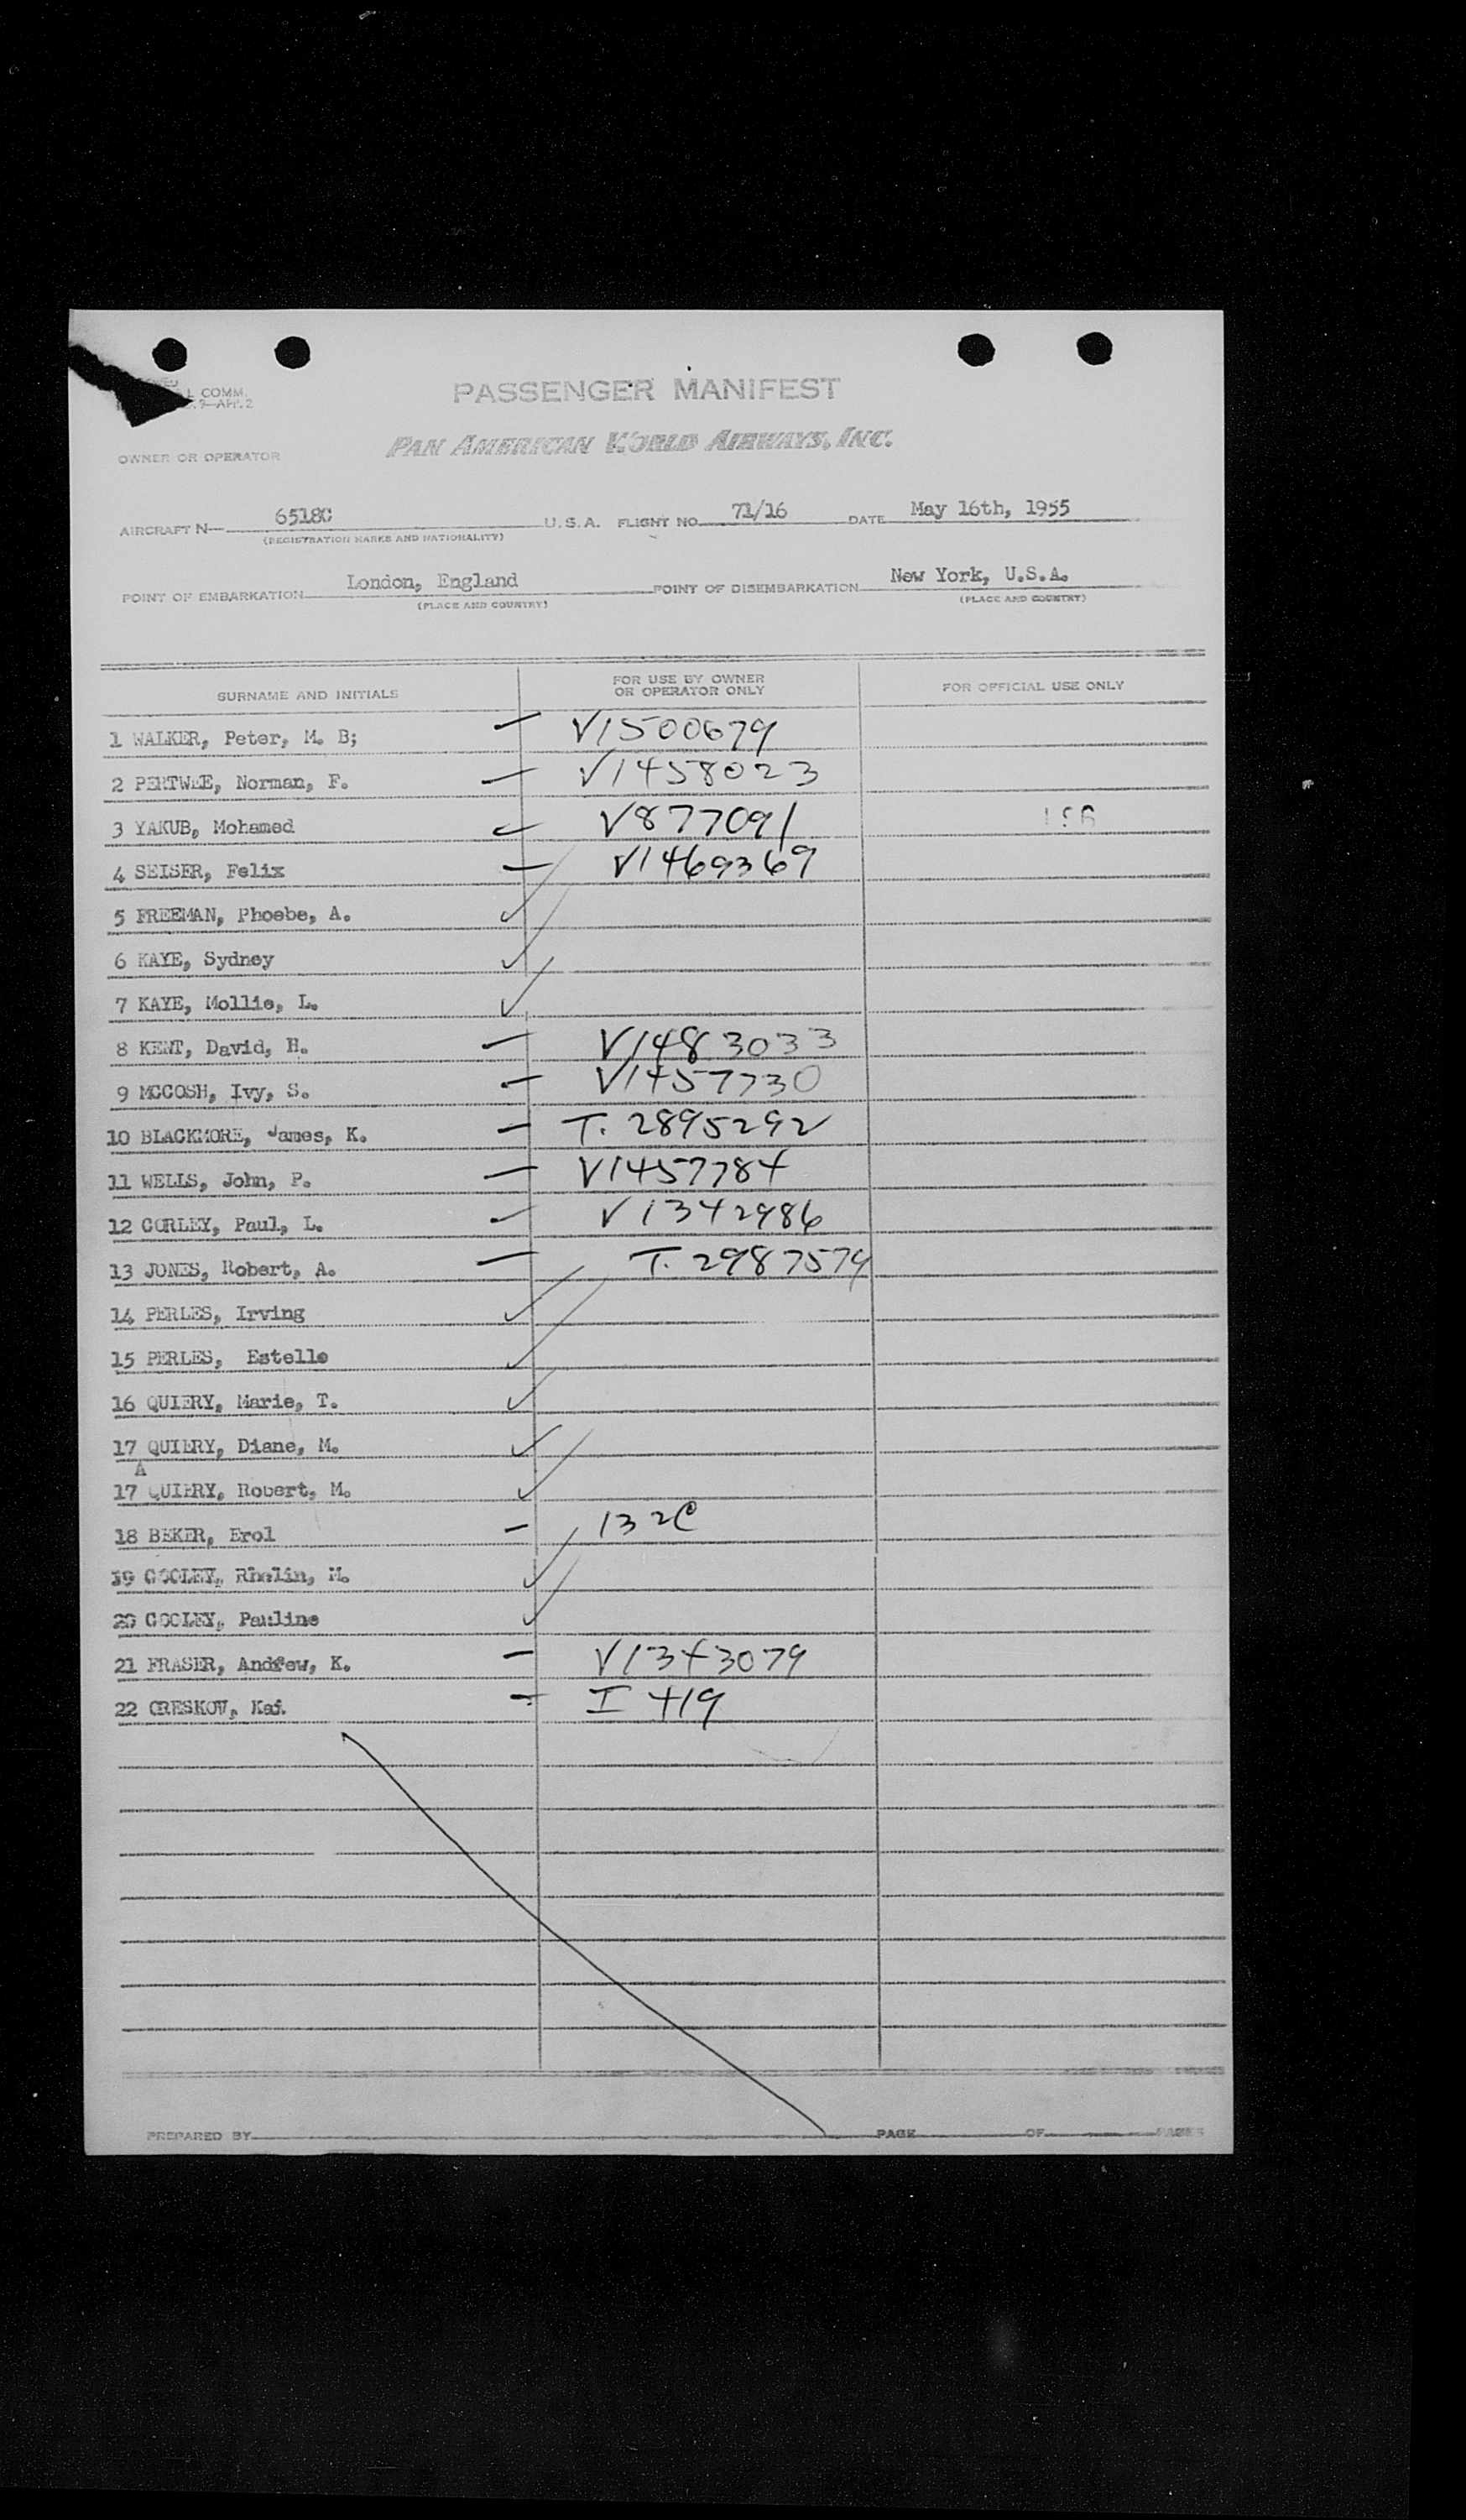 L COMM.
9—APP. 2
PASSENGER MANIFEST
OWNER OR OPERATOR PAN AMERICAN WORLD AIRWAYS, INC.
AIRCRAFT N— 6518C U.S.A. FLIGHT NO. 71/16 DATE May 16th, 1955
(REGISTRATION MARKS AND NATIONALITY)
POINT OF EMBARKATION London, England POINT OF DISEMBARKATION New York, U.S.A.
(PLACE AND COUNTRY) (PLACE AND COUNTRY)
SURNAME AND INITIALS FOR USE BY OWNER OR OPERATOR ONLY FOR OFFICIAL USE ONLY
1 WALKER, Peter, M. B; — V1500679
2 PERTWEE, Norman, F. — V1458023
3 YAKUB, Mohamed V877091
4 SEISER, Felix — V1469369
5 FREEMAN, Phoebe, A. ✓
6 KAYE, Sydney ✓
7 KAYE, Mollie, L. ✓
8 KENT, David, H. — V1483033
9 MCCOSH, Ivy, S. — V1457730
10 BLACKMORE, James, K. — T. 2895292
11 WELLS, John, P. — V1457784
12 CORLEY, Paul, L. — V1342986
13 JONES, Robert, A. — T. 2987574
14 PERLES, Irving ✓
15 PERLES, Estelle ✓
16 QUIERY, Marie, T. ✓
17 QUIERY, Diane, M. ✓
A
17 QUIERY, Robert, M. ✓
18 BEKER, Erol — 132C
19 COOLEY, Rhelin, M. ✓
20 COOLEY, Pauline ✓
21 FRASER, Andrew, K. — V1343079
22 GRESKOV, Kaj. — I 419
PREPARED BY PAGE OF PAGES